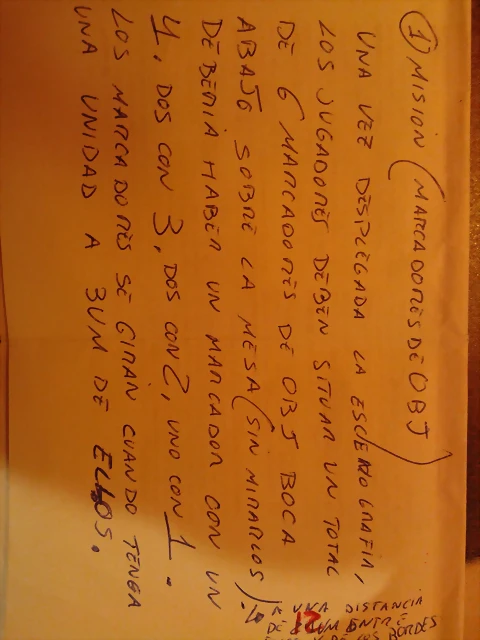 ① MISION (MARCADORES DE OBJ)
UNA VEZ DESPLEGADA LA ESCENOGRAFIA,
LOS JUGADORES DEBEN SITUAR UN TOTAL
DE 6 MARCADORES DE OBJ BOCA
ABAJO SOBRE LA MESA (SIN MIRARLOS).
DEBERIA HABER UN MARCADOR CON UN
4, DOS CON 3, DOS CON 2, UNO CON 1.
LOS MARCADORES SE GIRAN CUANDO TENGA
UNA UNIDAD A 3UM DE ELLOS.
A UNA DISTANCIA
DE UM ENTRE
BORDES